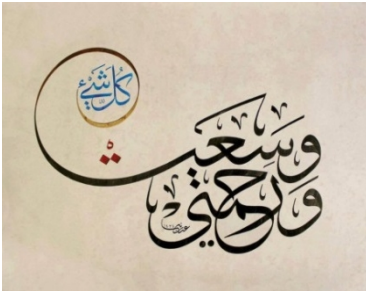 وَرَحْمَتِي
وَسِعَت
كُلَّ شَيْءٍ